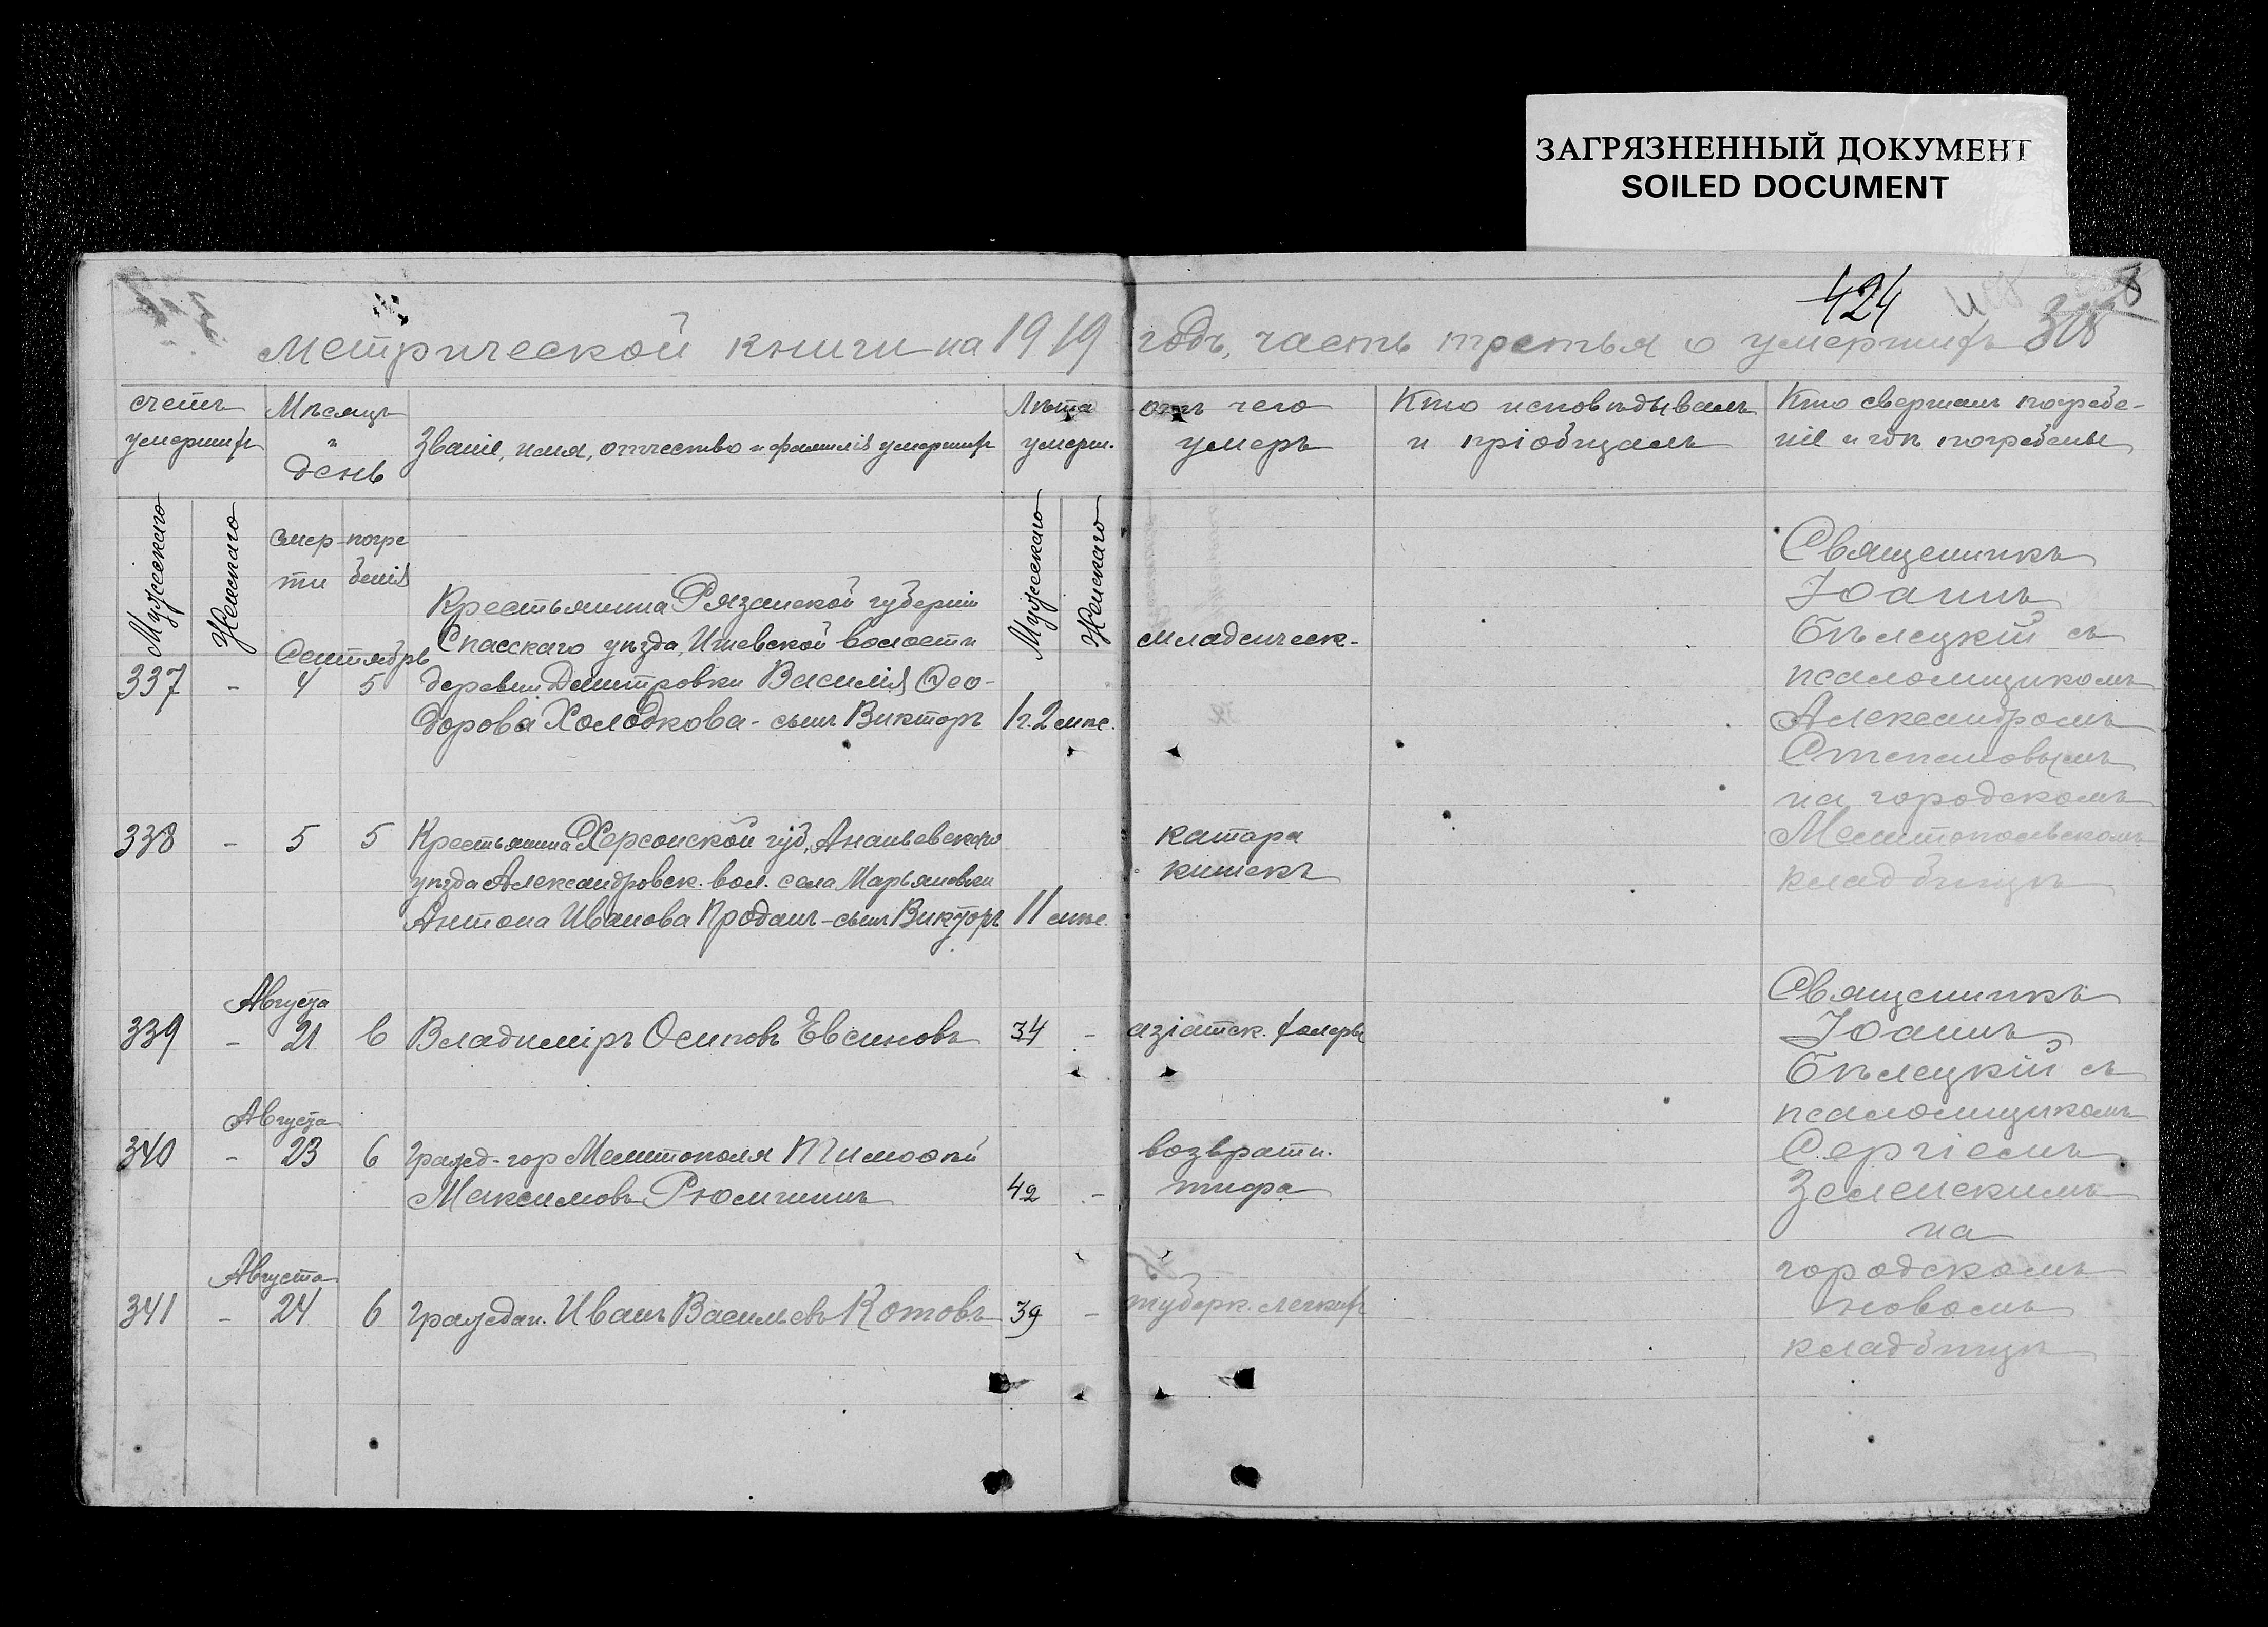 ЗАГРЯЗНЕННЫЙ ДОКУМЕНТ
SOILED DOCUMENT
424
308
Метрической книги на 1919 годъ, часть третья о умершихъ
счетъ умершихъ
Мужескаго
Женскаго
Мѣсяцъ
"
день
смер-
ти
погре
бенія
Званіе, имя, отчество и фамилія умершихъ
Лѣта
умерш.
Мужескаго
Женскаго
отъ чего
умеръ
Кто исповѣдывалъ
и пріобщалъ
Кто свершалъ погребе-
ніе и гдѣ погребены
Сентябрь
337 - 4 5
Крестьянина Рязанской губерніи
Спасскаго уѣзда, Ижевской волости
деревни Дмитровки Василія Ѳео-
дорова Холодкова - сынъ Викторъ
1г. 2 мѣс.
младенческ.
Священникъ
Іоаннъ
Бѣлецкій съ
псаломщикомъ
Александромъ
Степановымъ
на городскомъ
Мелитопольскомъ
кладбищѣ
338 - 5 5
Крестьянина Херсонской губ, Ананьевскаго
уѣзда Александровск. вол. села Марьяновки
Антона Иванова Проданъ - сынъ Викторъ
11 мѣс.
катара
кишекъ
Августа
339 - 21 6
Владиміръ Осиповъ Евсиновъ
34 -
азіатск. холеры
Священникъ
Іоаннъ
Бѣлецкій съ
псаломщикомъ
Сергіемъ
Зеленскимъ
на
городскомъ
новомъ
кладбищѣ
Августа
340 - 23 6
Гражд. гор Мелитополя Тимоѳей
Максимовъ Рюмшинъ
42 -
возвратн.
тифа
Августа
341 - 24 6
Граждан. Иванъ Васильевъ Котовъ
39 -
туберк. легкихъ